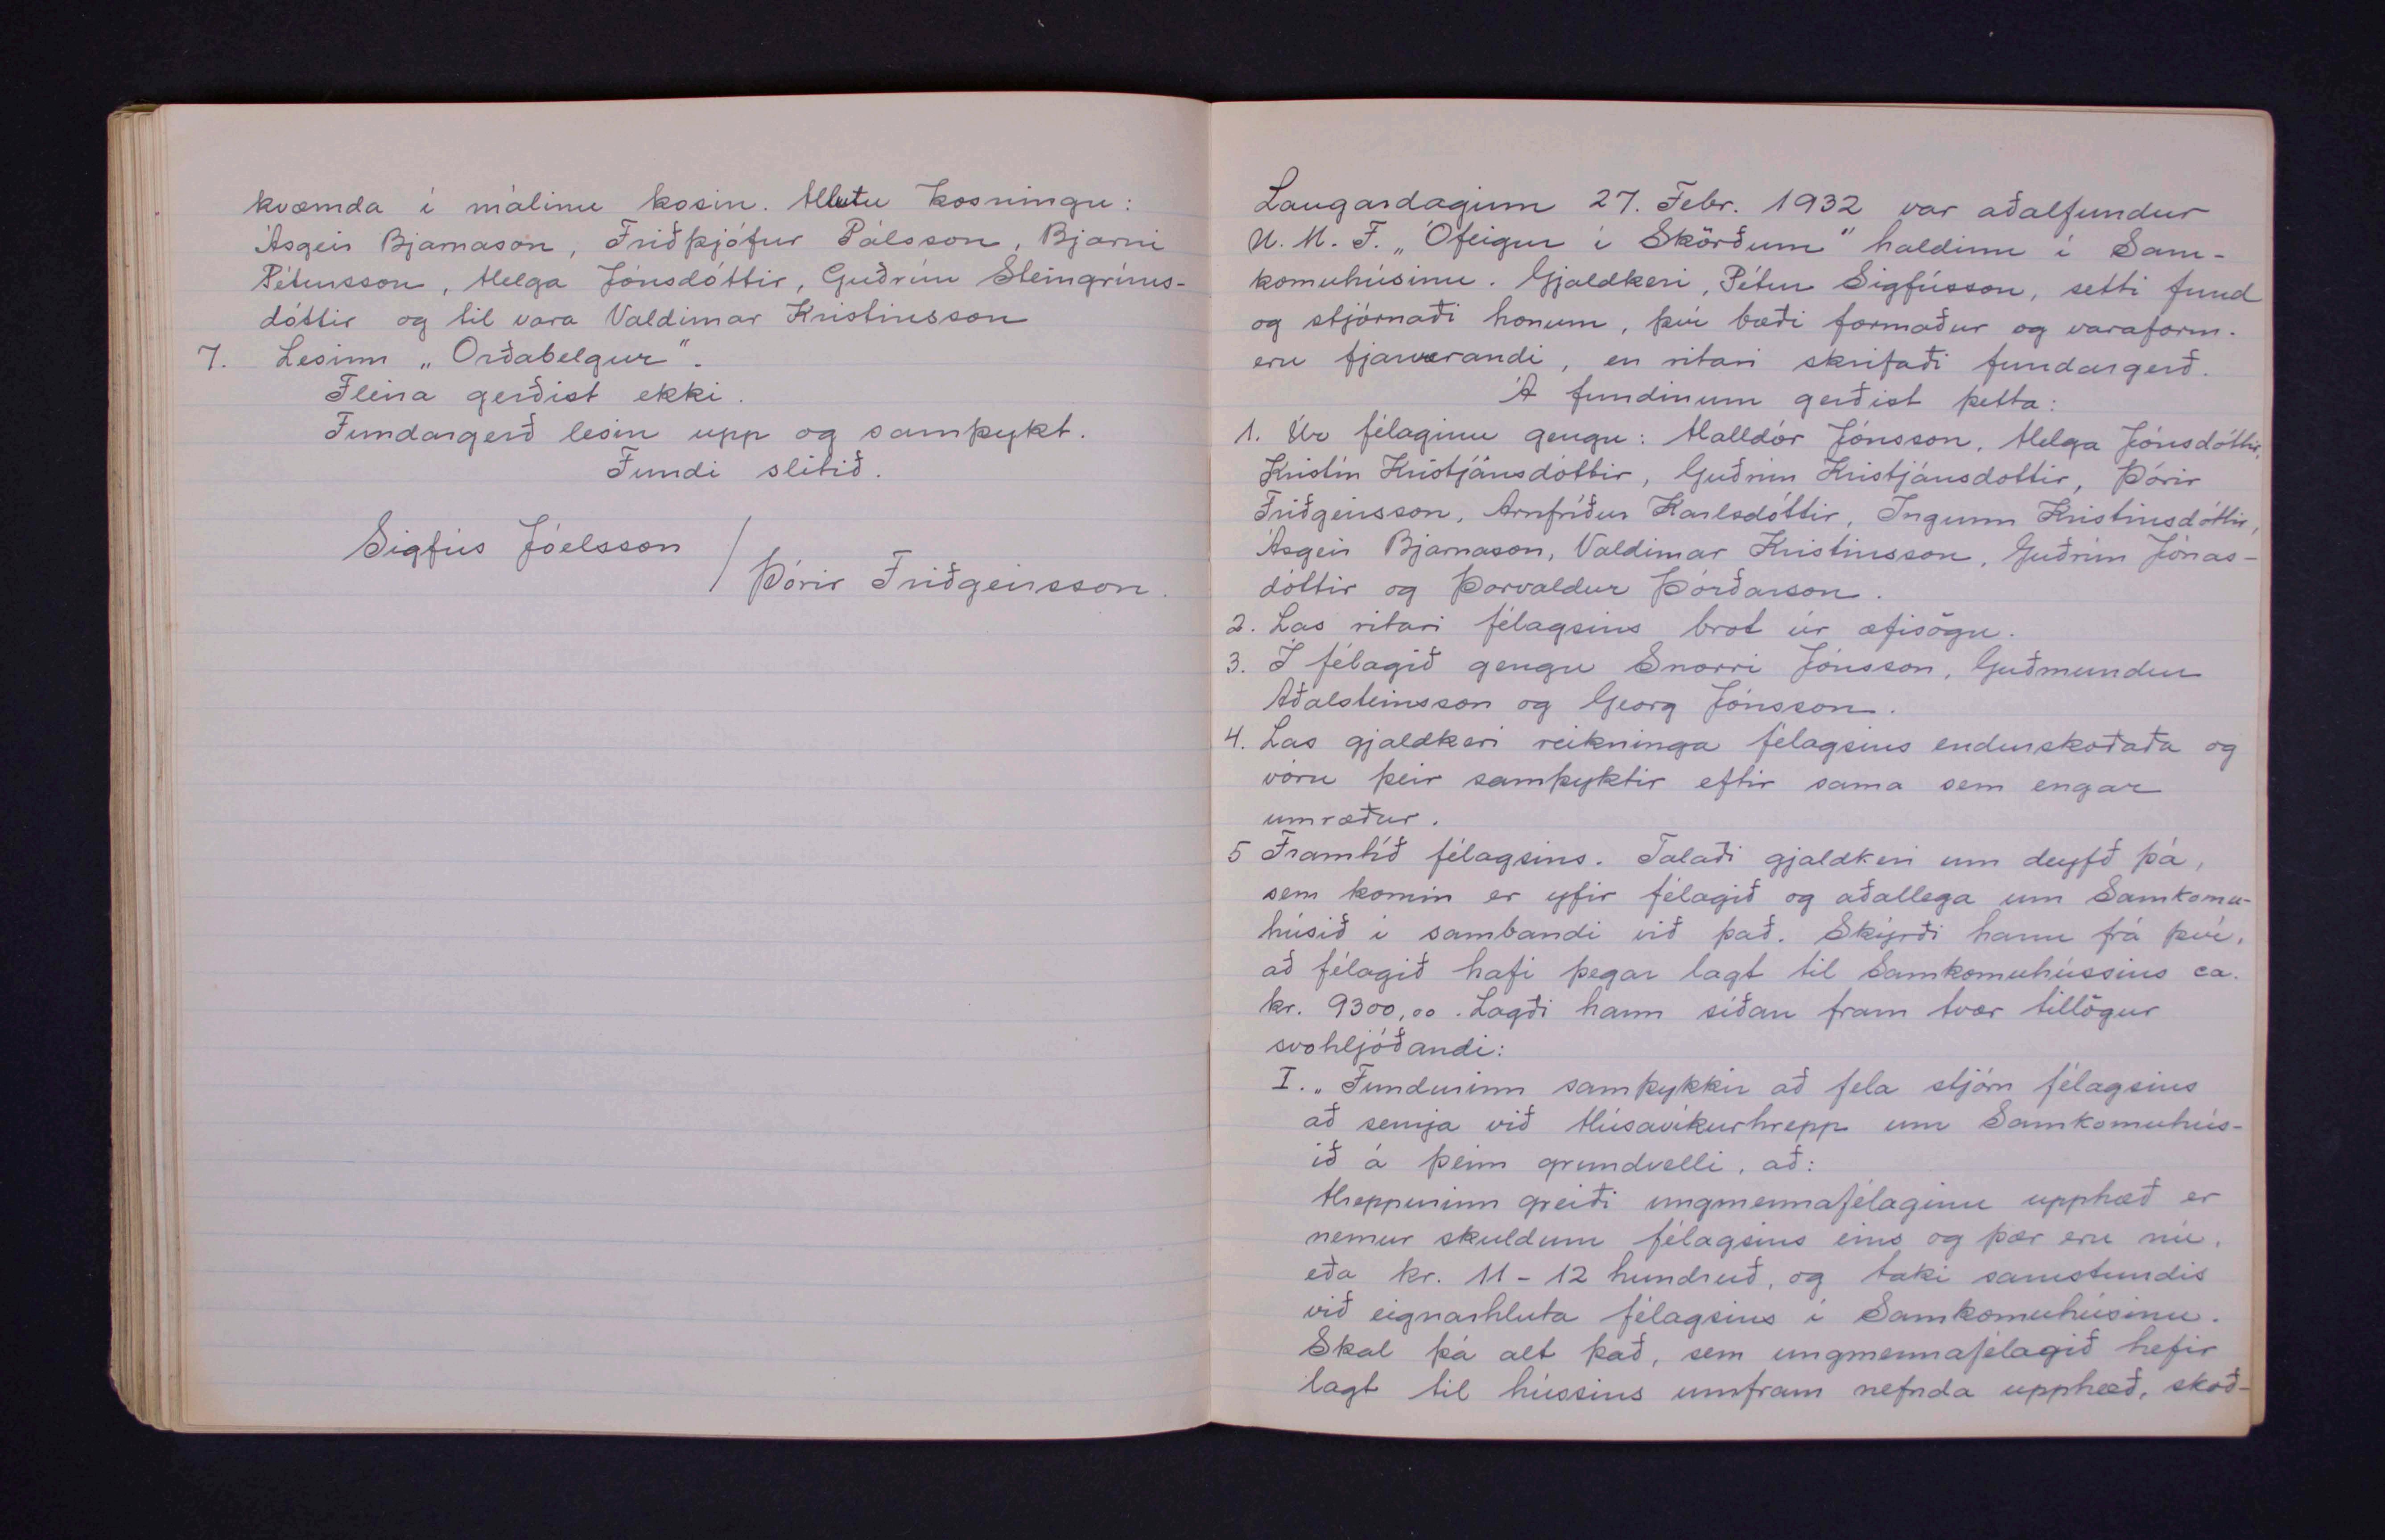 kvæmda í málinu kosin. Hlutu kosningu:
Ásgeir Bjarnason, Friðþjófur Pálsson, Bjarni
Pétursson, Helga Jónsdóttir, Guðrún Steingríms-
dóttir og til vara Valdimar Kristinsson
7. Lesinn „Orðabelgur".
Fleira gerðist ekki.
Fundargerð lesin upp og samþykt.
Fundi slitið.
Sigfús Jóelsson
/ Þórir Friðgeirsson.
Laugardaginn 27. Febr. 1932 var aðalfundur
U. M. F. „Ófeigur í Skörðum" haldinn í Sam-
komuhúsinu. Gjaldkeri, Pétur Sigfússon, setti fund
og stjórnaði honum, því bæði formaður og varaform.
eru fjarverandi, en ritari skrifaði fundargerð.
Á fundinum gerðist þetta:
1. Úr félaginu gengu: Halldór Jónsson, Helga Jónsdóttir,
Kristín Kristjánsdóttir, Guðrún Kristjánsdottir, Þórir
Friðgeirsson, Arnfríður Karlsdóttir, Ingunn Kristinsdóttir,
Ásgeir Bjarnason, Valdimar Kristinsson, Guðrún Jónas-
dóttir og Þorvaldur Þórðarson.
2. Las ritari félagsins brot úr æfisögu.
3. Í félagið gengu Snorri Jónsson, Guðmundur
Aðalsteinsson og Georg Jónsson.
4. Las gjaldkeri reikninga félagsins endurskoðaða og
vóru þeir samþyktir eftir sama sem engar
umræður.
5 Framtíð félagsins. Talaði gjaldkeri um deyfð þá,
sem komin er yfir félagið og aðallega um Samkomu-
húsið í sambandi við það. Skýrði hann frá því,
að félagið hafi þegar lagt til Samkomuhússins ca.
kr. 9300,00. Lagði hann síðan fram tvær tillögur
svohljóðandi:
I. „Fundurinn samþykkir að fela stjórn félagsins
að semja við Húsavíkurhrepp um Samkomuhús-
ið á þeim grundvelli, að:
Hreppurinn greiði ungmennafélaginu upphæð er
nemur skuldum félagsins eins og þær eru nú,
eða kr. 11-12 hundruð, og taki samstundis
við eignarhluta félagsins í Samkomuhúsinu.
Skal þá alt það, sem ungmennafélagið hefir
lagt til hússins umfram nefnda upphæð, skoð-